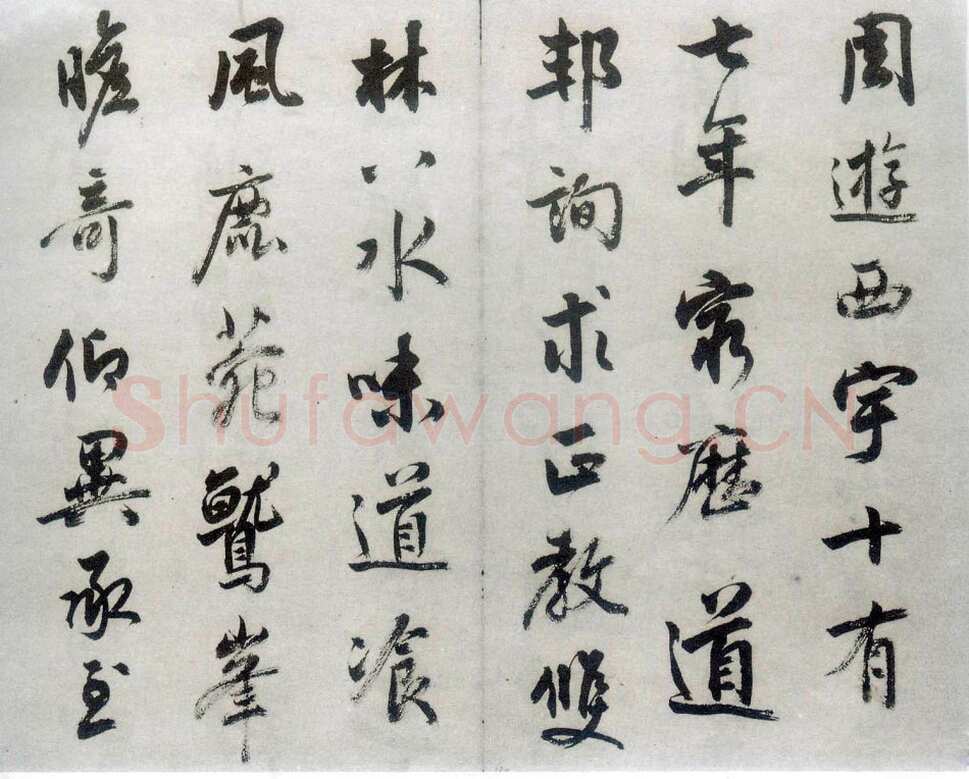 周遊西宇十有
七年窮歷道
邦詢求正教雙
林八水味道飡
風鹿菀鷲峯
瞻奇仰異承至
Shufawang.CN